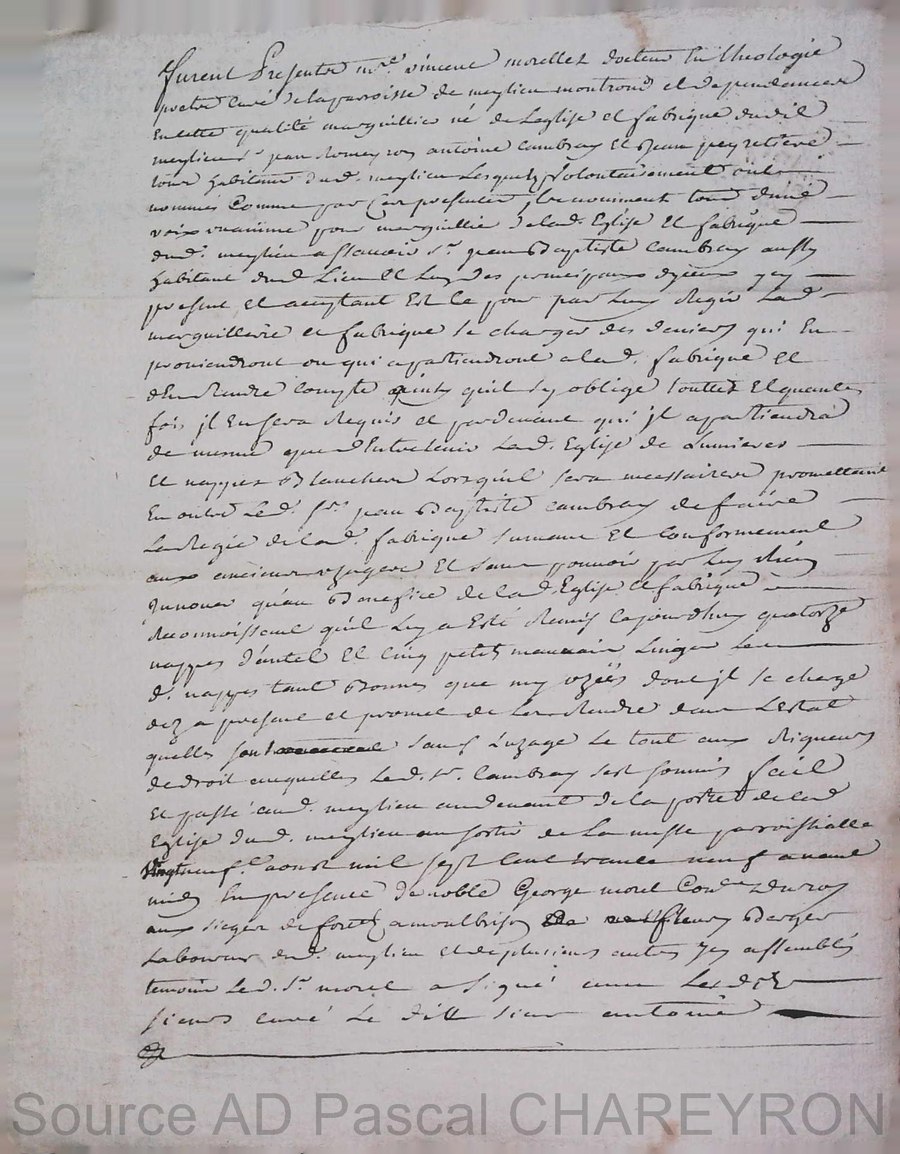 furent Presents mre. vincent morellet docteur En theologie
pretre curé de la parroisse de meylieu montrond et dependances
En cette qualité marguillier né de Leglise et fabrique dudit
meylieu sr. jean antoine cambray Et jean peyretiere
tous habitans dud. meylieu Lesquels volontairement ont
nommés Comme par Ces presentes jls nomment tous d'une
voix unanime pour marguillier de lad. Eglise Et fabrique
dud. meylieu a scavoir Sr. jean Baptiste Cambray aussy
habitant dud Lieu Et Luy des principaux d'jceux jcy
present et acceptant Est ce pour par Luy Regir Lad
marguillerie et fabrique se charger des deniers qui En
proviendront ou qui apartiendront a lad. fabrique et
d'En Rendre Compte ainsy qu'il s'y oblige touttes Et quantes
fois jl En sera Requis et pardevant qui jl apartiendra
de mesme que d'Entretenir Lad. Eglise de Lumieres
Et nappes Blanches Lorsqu'il sera nessaire promettant
En outre Led. Sr. jean Baptiste Cambray de faire
La Regie de lad. fabrique Et Conformement
aux anciens uzages Et sans pouvoir par Luy Rien
jnnover qu'au Benefice de lad. Eglise et fabrique
Reconnoissent qu'il Luy a Esté Remis Cejourdhuy quatorze
nappes d'autel Et cinq petits mauvais Linges Les
d. nappes tant Bonnes que my uzées dont jl se charge
dez a present et promet de Les Rendre dans L'Estat
quelles sont sauf L'uzage Le tout aux Rigueurs
de droit auquelles Led. Sr. Cambray s'est soumis fait
Et passé aud. meylieu au devant de la porte de lad
Eglise dud. meylieu au sortir de La messe parroissialle
vingt neuf aoust mil sept Cent trante neuf avant
midy En presence de noble George morel du roy
aux sieges de forest a montbrison fleury Berger
Laboureur dud. meylieu et de plusieurs autres jcy assemblés
temoins Led. Sr. morel a signé avec Lesdits
sieurs curé Le dit sieur antoine